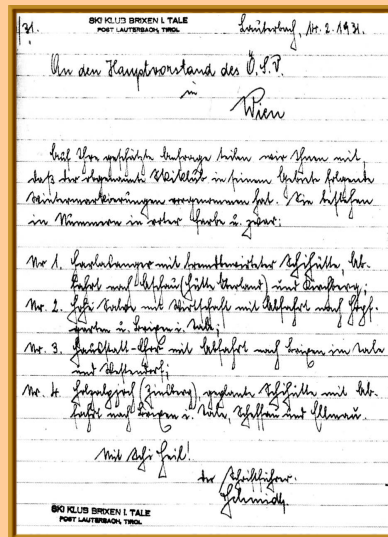 /31.
SKI KLUB BRIXEN I. TALE
POST LAUTERBACH, TIROL
Lauterbach, 14. 2. 1931.
An den Hauptvorstand des Ö.S.V.
in
Wien
Auf Ihre geschätzte Anfrage teilen wir Ihnen mit,
daß der obgenannte Skiklub in seinem Gebiete folgende
Wintermarkierungen vorgenommen hat. Sie bestehen
in Nummern in roter Farbe u. zwar:
Nr 1. mit Schihütte, Ab-
fahrt nach Aschau (Hütte Oberland) und Kirchberg;
Nr. 2. Hohe Salve mit Wirtschaft mit Abfahrt nach Hopf-
garten u. Brixen i. Tale;
Nr. 3. mit Abfahrt nach Brixen im Tale
und Westendorf;
Nr. 4. (Zinsberg), geplante Schihütte mit Ab-
fahrt nach Brixen i. Tale, Scheffau und Ellmau.
Mit Schi Heil!
der Schriftführer:
Schmidt
SKI KLUB BRIXEN I. TALE
POST LAUTERBACH, TIROL